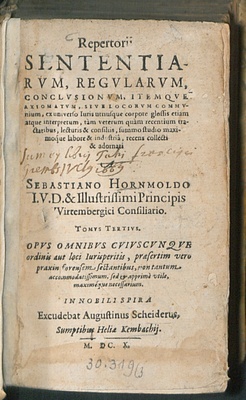 Repertorii
SENTENTIA-
RVM, REGVLARVM,
CONCLVSIONVM, ITEMQVE
AXIOMATVM, SIVE LOCORVM COMMV-
nium, ex universo Iuris utriusque corpore glossis etiam
atque interpretum, tàm veterum quàm recentium tra-
ctatibus, lecturis & consiliis, summo studio maxi-
moque labore & industriâ, recens collecta
& adornati
SEBASTIANO HORNMOLDO
I.V.D. & Illustrissimi Principis
Virtembergici Consiliario.
TOMVS TERTIVS.
OPVS OMNIBVS CVIVSCVNQVE
ordinis aut loci Iurisperitis, præsertim verò
praxin forensem sectantibus, non tantùm
accommodatissimum, sed & apprimè utile,
maximéque necessarium.
IN NOBILI SPIRA
Excudebat Augustinus Scheiderus,
Sumptibus Heliæ Kembachij.
M. DC. X.
30.319/3